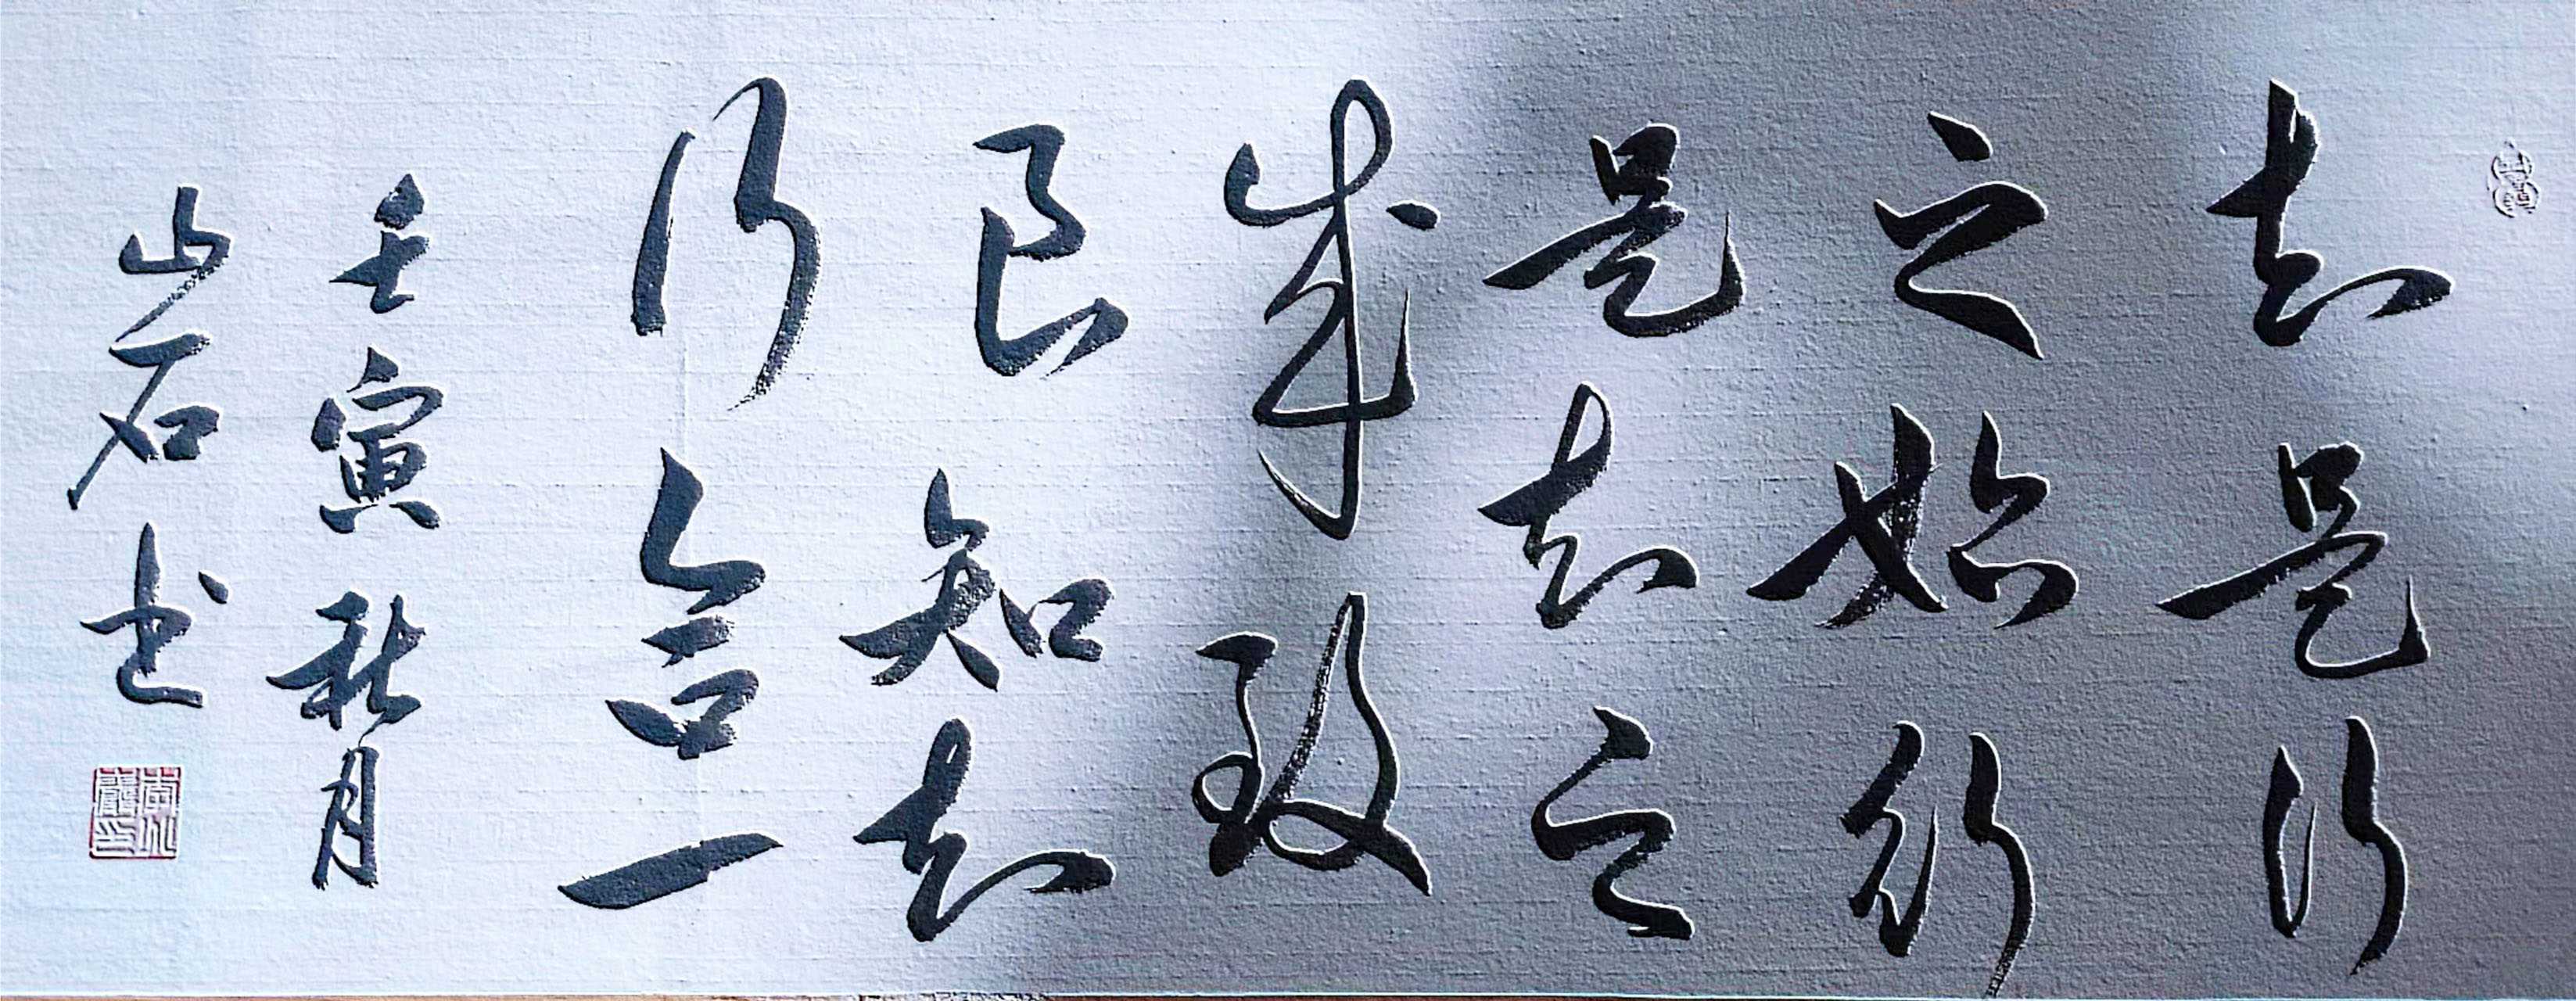 知是行
之始行
是知之
成致
良知知
行合一
壬寅秋月
山石书